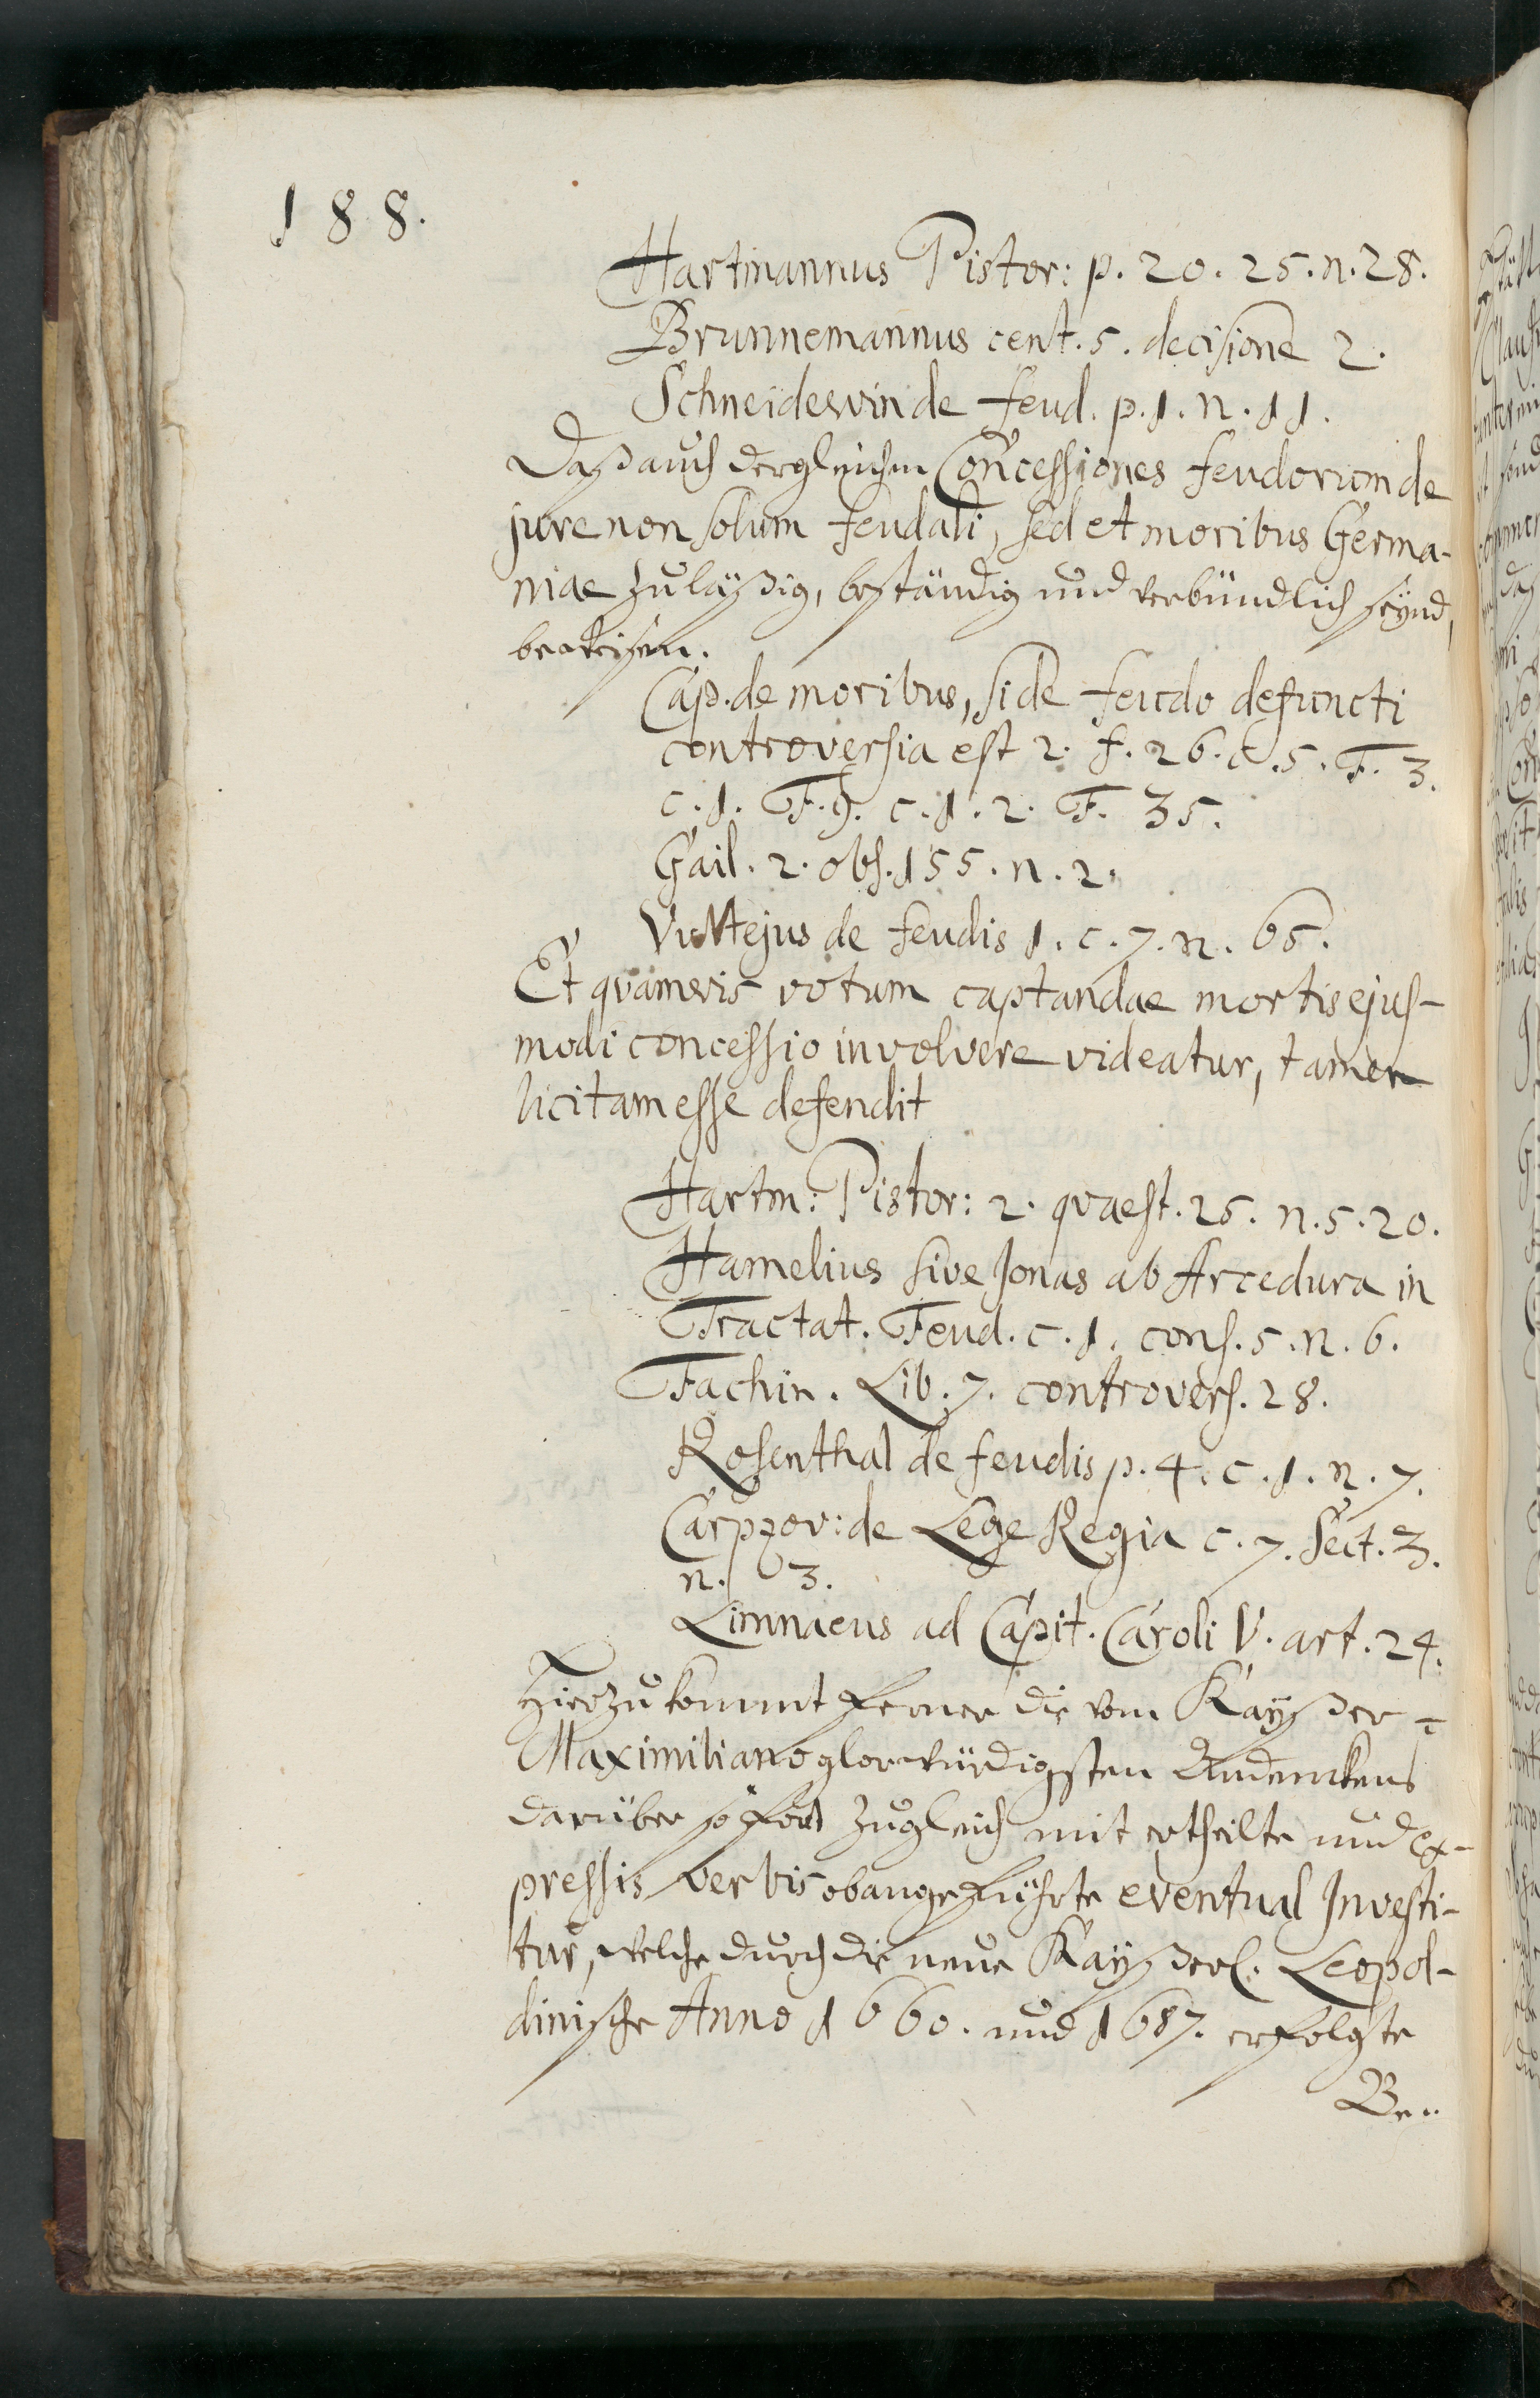 188.
Hartmannus Pistor: p. 20. 25. n. 28.
Brunnemannus cent. 5. decisione 2.
Schneidewin de feud. p. 1. n. 11.
Daß auch dergleichen Concessiones feudorum de
jure non solum feudali, sed et moribus Germa-
niae zuläßig, beständig und verbündlich seynd,
beweisen.
Cap. de moribus, si de feudo defuncti
controversia est 2. f. 26. c. 5. F. 3.
c. 1. F. 9. c. 1. 2. F. 35.
Gail. 2. obs. 155. n. 2.
Vultejus de feudis 1. c. 7. n. 65.
Et qvamvis votum captandae mortis ejus-
modi concessio involvere videatur, tamen
licitam esse defendit
Hartm: Pistor: 2. qvaest. 25. n. 5. 20.
Hamelius sive Jonas ab Arcedura in
Tractat. Feud. c. 1. cons. 5. n. 6.
Fachin. Lib. 7. controvers. 28.
Rosenthal de feudis p. 4. c. 1. n. 7.
Carpzov: de Lege Regia c. 7. Sect. 3.
n. 3.
Limnaeus ad Capit. Caroli V. art. 24.
Hierzu kommt ferner die vom Kayßer
Maximiliano glorwürdigsten Andenckens
darüber so fort zugleich mit ertheilte und ex-
pressis verbis obangeführte eventual Investi-
tur, welche durch die neue Kayßerl. Leopol-
dinische Anno 1660. und 1687. erfolgte
Be-